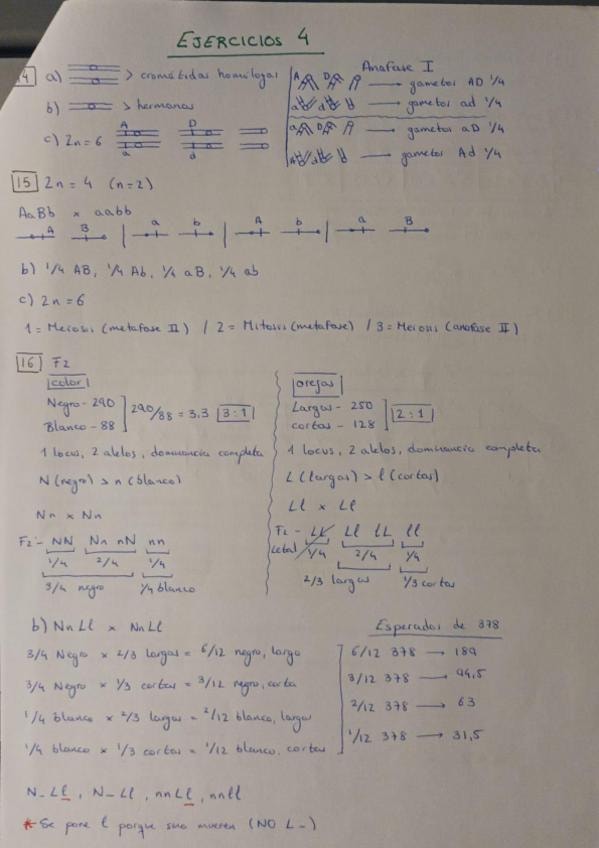 EJERCICIOS 4
14 a) > cromátidas homólogas
b) > hermanas
c) 2n = 6 A a D d
Anafase I
A D → gametos AD 1/4
a d → gametos ad 1/4
a D → gametos aD 1/4
A d → gametos Ad 1/4
15 2n = 4 (n = 2)
AaBb x aabb
A B | a b | A b | a B
b) 1/4 AB, 1/4 Ab, 1/4 aB, 1/4 ab
c) 2n = 6
1 = Meiosis (metafase II) / 2 = Mitosis (metafase) / 3 = Meiosis (anafase II)
16 F2
color
Negro - 290
Blanco - 88
290/88 = 3,3 3:1
1 locus, 2 alelos, dominancia completa
N (negro) > n (blanco)
Nn x Nn
F2 - NN Nn nN nn
1/4 2/4 1/4
3/4 negro 1/4 blanco
orejas
Largas - 250
cortas - 128
2:1
1 locus, 2 alelos, dominancia completa
L (largas) > l (cortas)
Ll x Ll
F2 - LL Ll lL ll
Letal 1/4 2/4 1/4
2/3 largas 1/3 cortas
b) NnLl x NnLl
3/4 Negro x 2/3 largas = 6/12 negro, largo
3/4 Negro x 1/3 cortas = 3/12 negro, corta
1/4 blanco x 2/3 largas = 2/12 blanco, largas
1/4 blanco x 1/3 cortas = 1/12 blanco, cortas
Esperados de 378
6/12 378 → 189
3/12 378 → 94,5
2/12 378 → 63
1/12 378 → 31,5
N_Ll, N_ll, nnLl, nnll
* Se pone l porque sino mueren (NO L-)